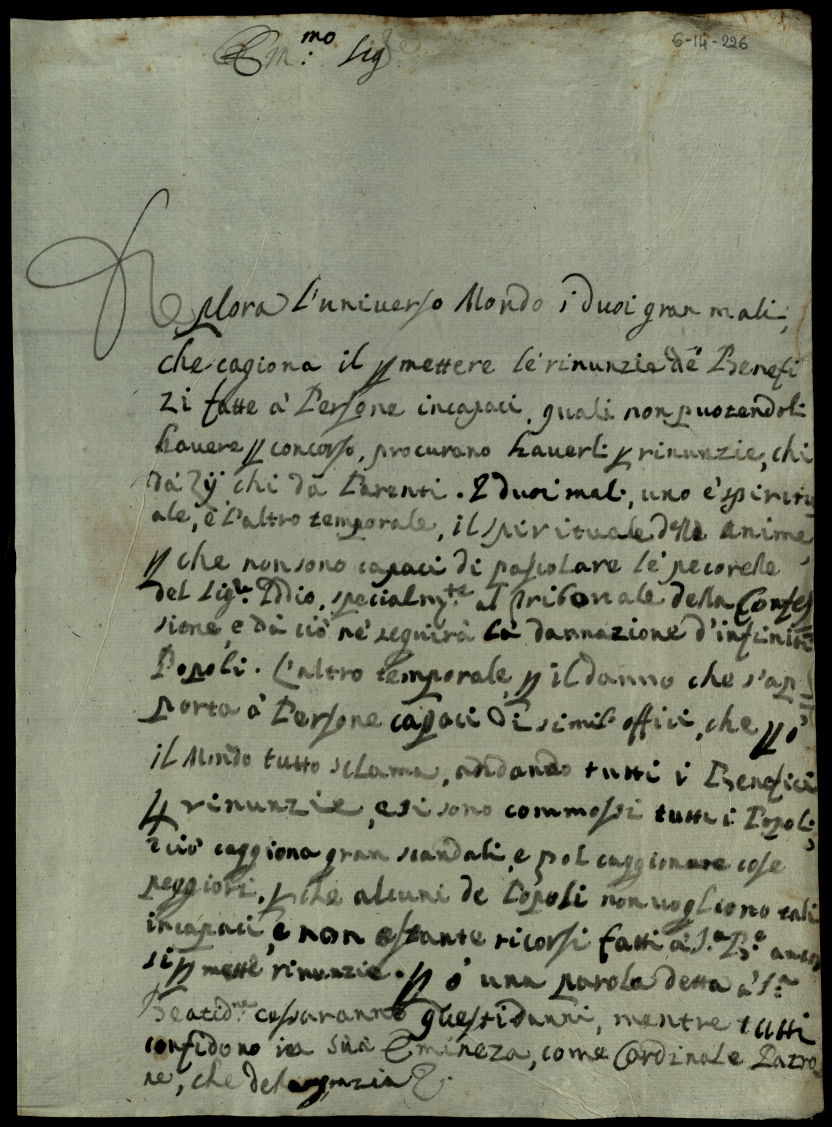 Em.mo Sig.re
6-14-226
Deplora l'universo Mondo i duoi gran mali,
che cagiona il pmettere le rinunzie de Benefi
zi fatte à Persone incapaci, quali non potendoli
havere p concorso, procurano haverli p rinunzie, chi
da Zij chi da Parenti. I duoi mali, uno è spiritu
ale, e l'altro temporale, il spirituale delle anime
p che non sono capaci di pascolare le pecorelle
del Sig.re Iddio, specialm.te al tribonale della Confes
sione, e da ciò ne seguirà la dannazione d'infiniti
Popoli. L'altro temporale, p il danno che s'ap
porta à Persone capaci di simili offici, che pò
il Mondo tutto sclama, andando tutti i Benefici
p rinunzie, e si sono commossi tutti i Popoli,
e ciò caggiona gran scandali, e pol caggionare cose
peggiori, p che alcuni de Popoli non vogliono tali
incapaci, e non ostante ricorsi fatti à S.a B.e ancor
si pmette rinunzie. pò una parola detta à S.a
Beatid.ne cessaranno questi danni, mentre tutti
confidono in sua Emineza, come Cardinale Patro
ne, che della grazia &.